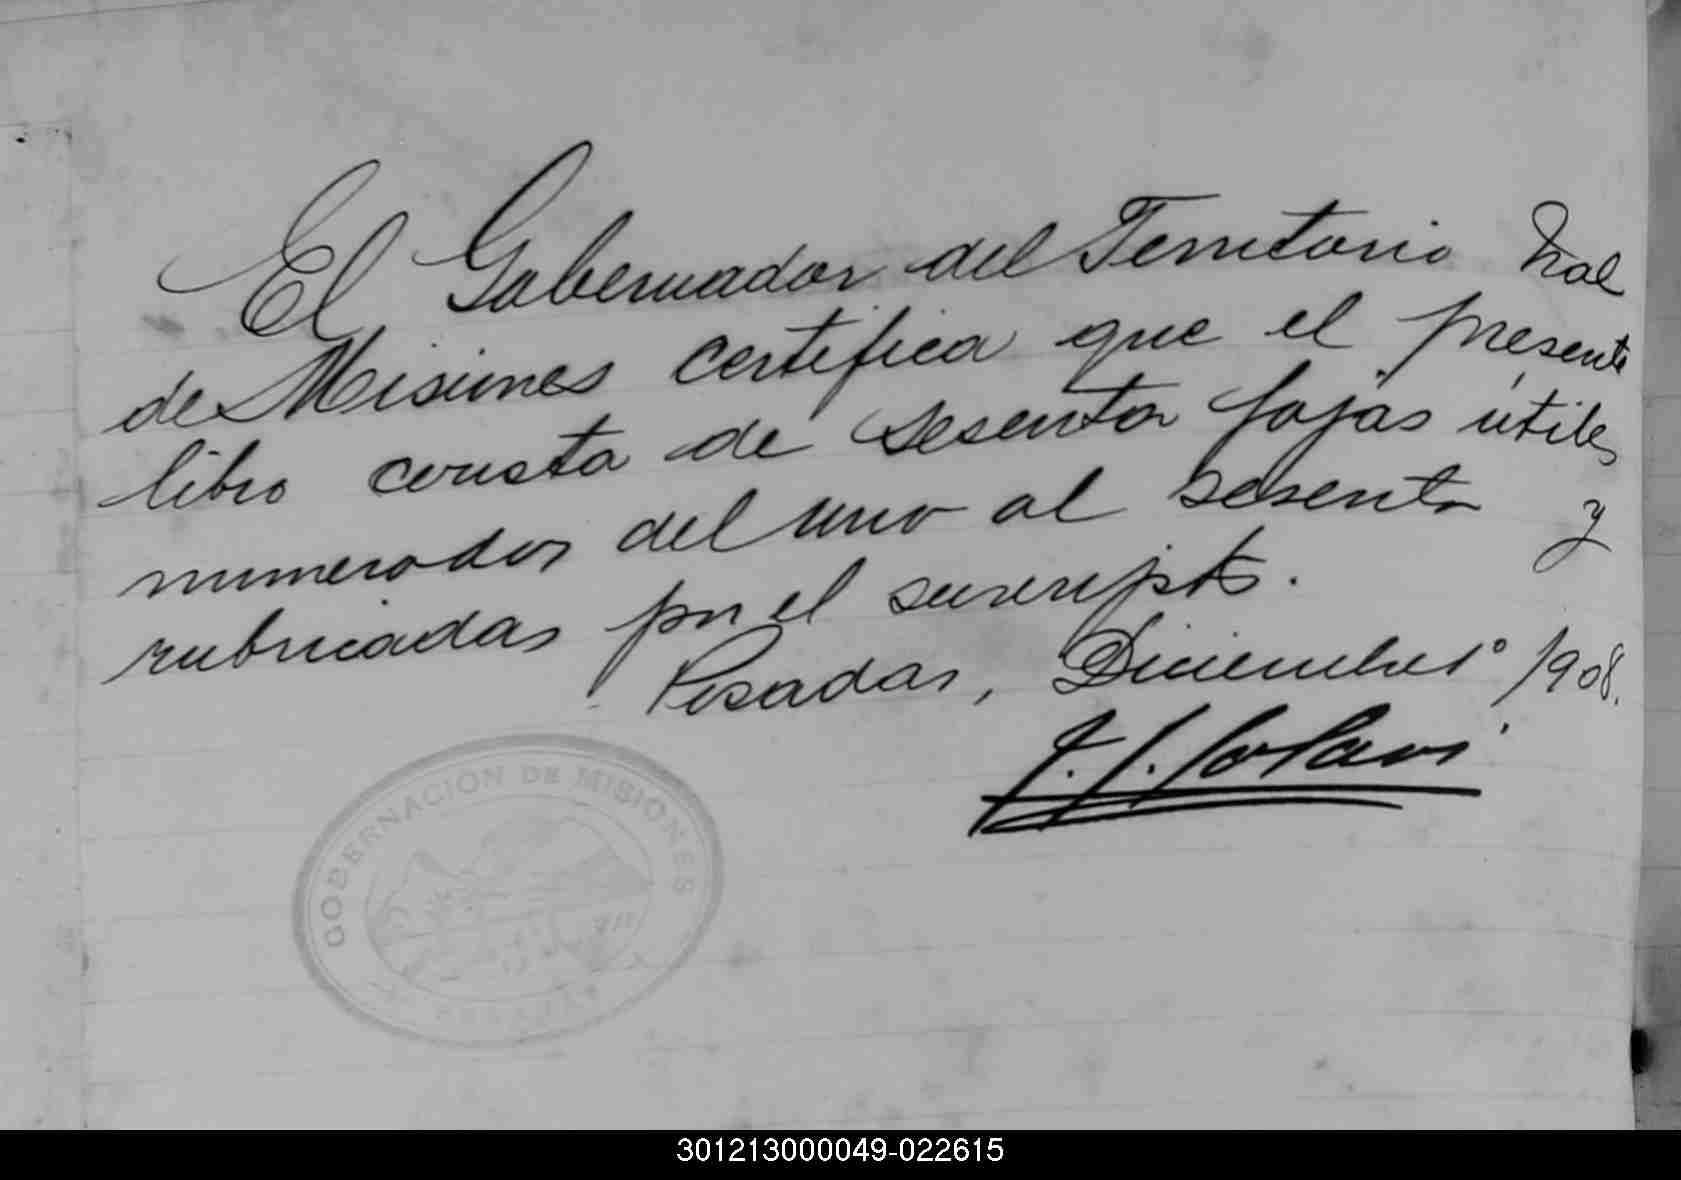 El Gobernador del Territorio Nal
de Misiones certifica que el presente
libro consta de sesenta fojas útiles
numerados del uno al sesenta y
rubricadas por el suscripto.
Posadas, Diciembre 1º 1908.
J. J. Lolaus
GOBERNACIÓN DE MISIONES
POSADAS
301213000049-022615